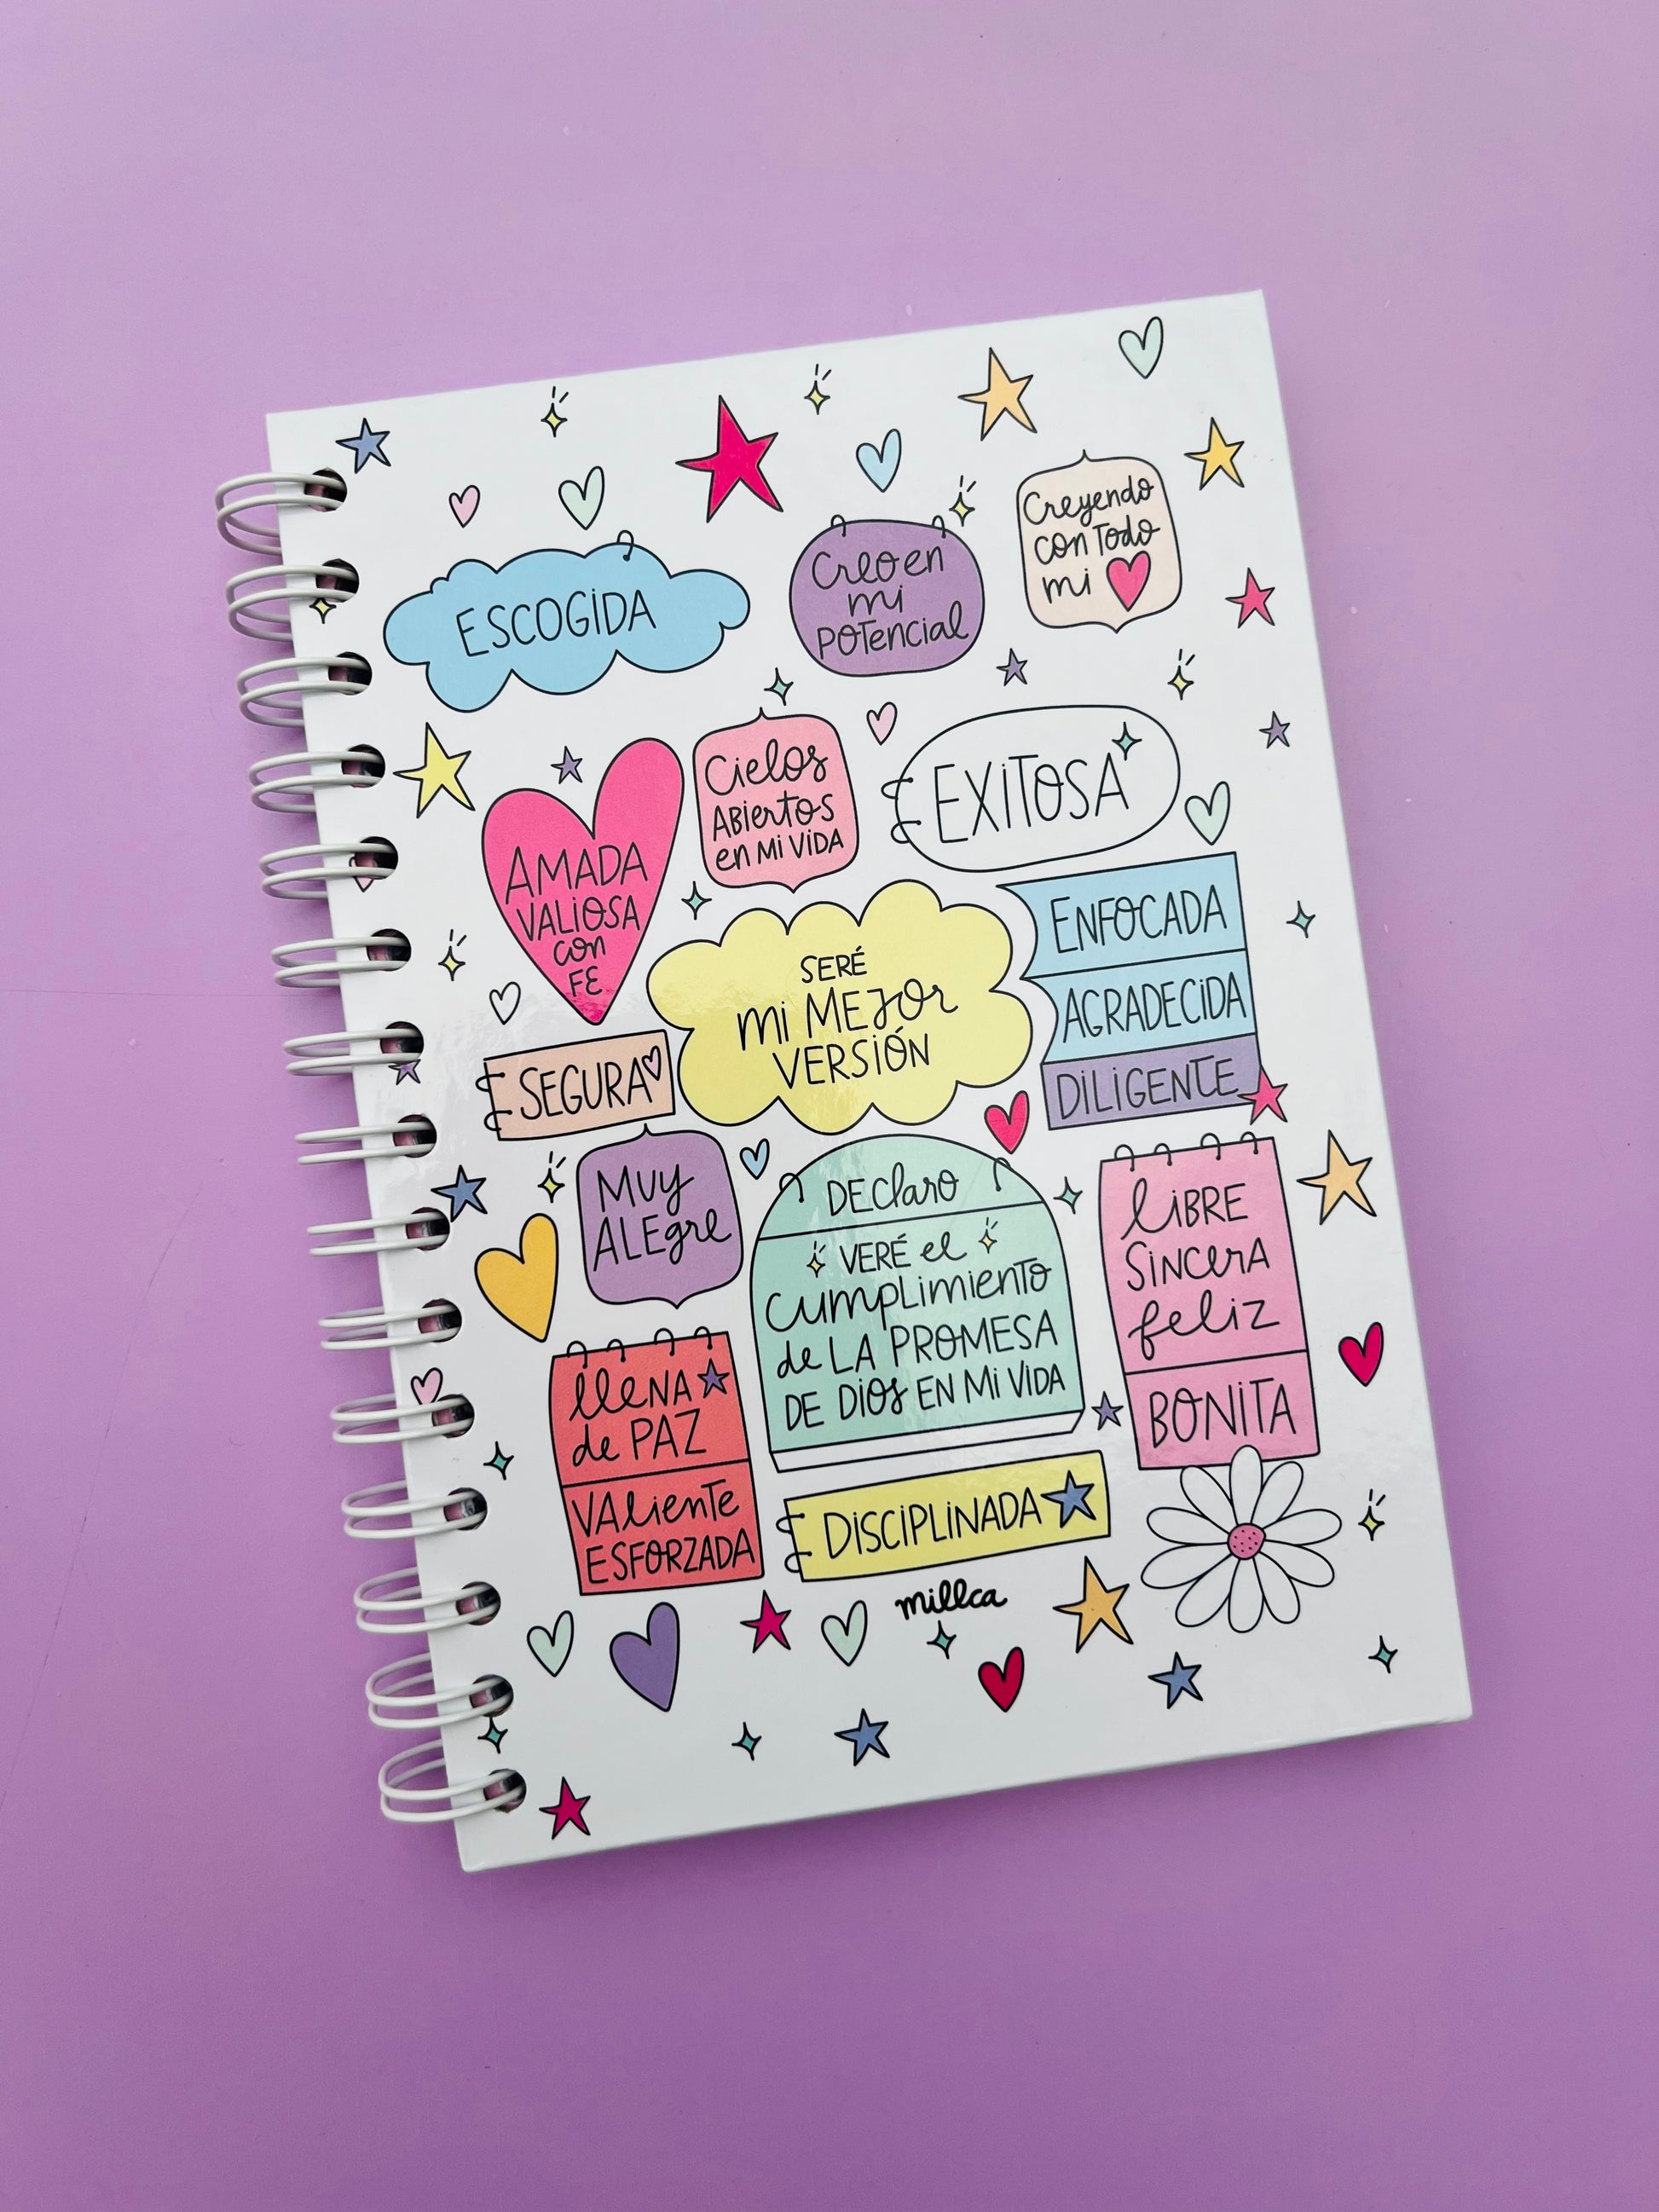 ESCOGIDA
Creo en
mi
POTencial
Creyendo
con Todo
mi
AMADA
VALIOSA
con
FE
Cielos
ABiertos
en Mi ViDA
EXiTOSA
ENFOCADA
AGRADECiDA
DiLiGENTE
SERÉ
Mi MEJOr
VERSiÓN
SEGURA
MUy
ALEgre
DEClaro
VERÉ el
cumpLimiento
de LA PROMESA
DE DiOS EN Mi ViDA
LiBRE
SincerA
feliz
BONiTA
llENA
de PAZ
VALienTe
ESFORZADA
DiSCiPLiNADA
millca